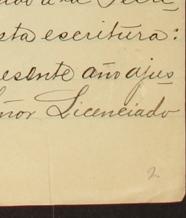 sta escritura:
esente año ajus
ñor Licenciado
2